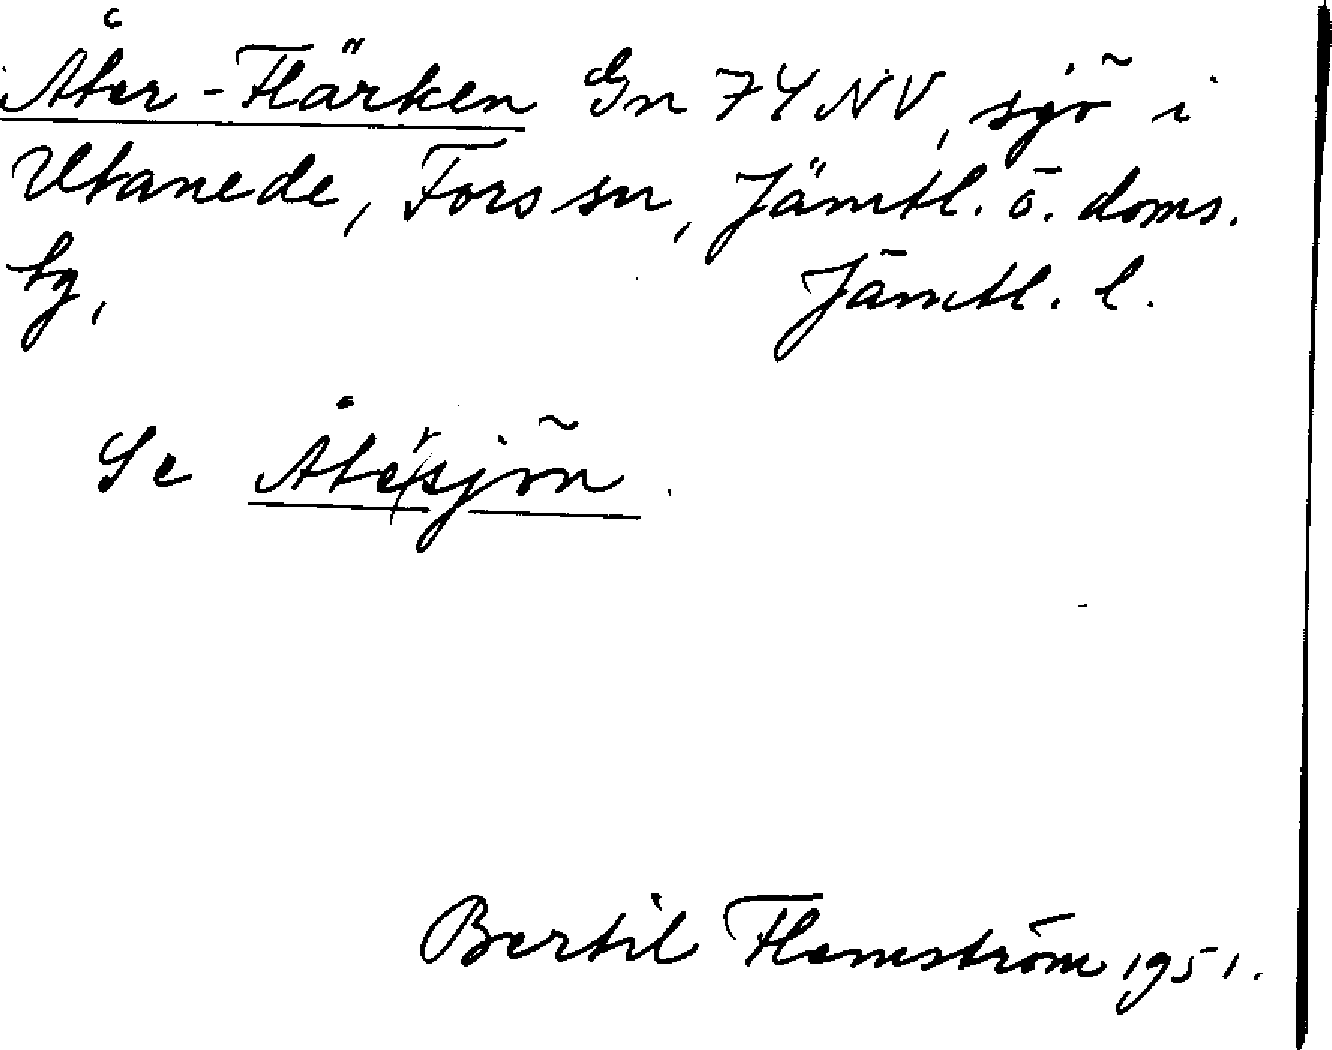 Åter-Flärken Gn 74 NV, sjö i
Utanede, Fors sn, Jämtl. ö. doms.
tg, Jämtl. l.
Se Åtesjön.
Bertil Flemström 1951.